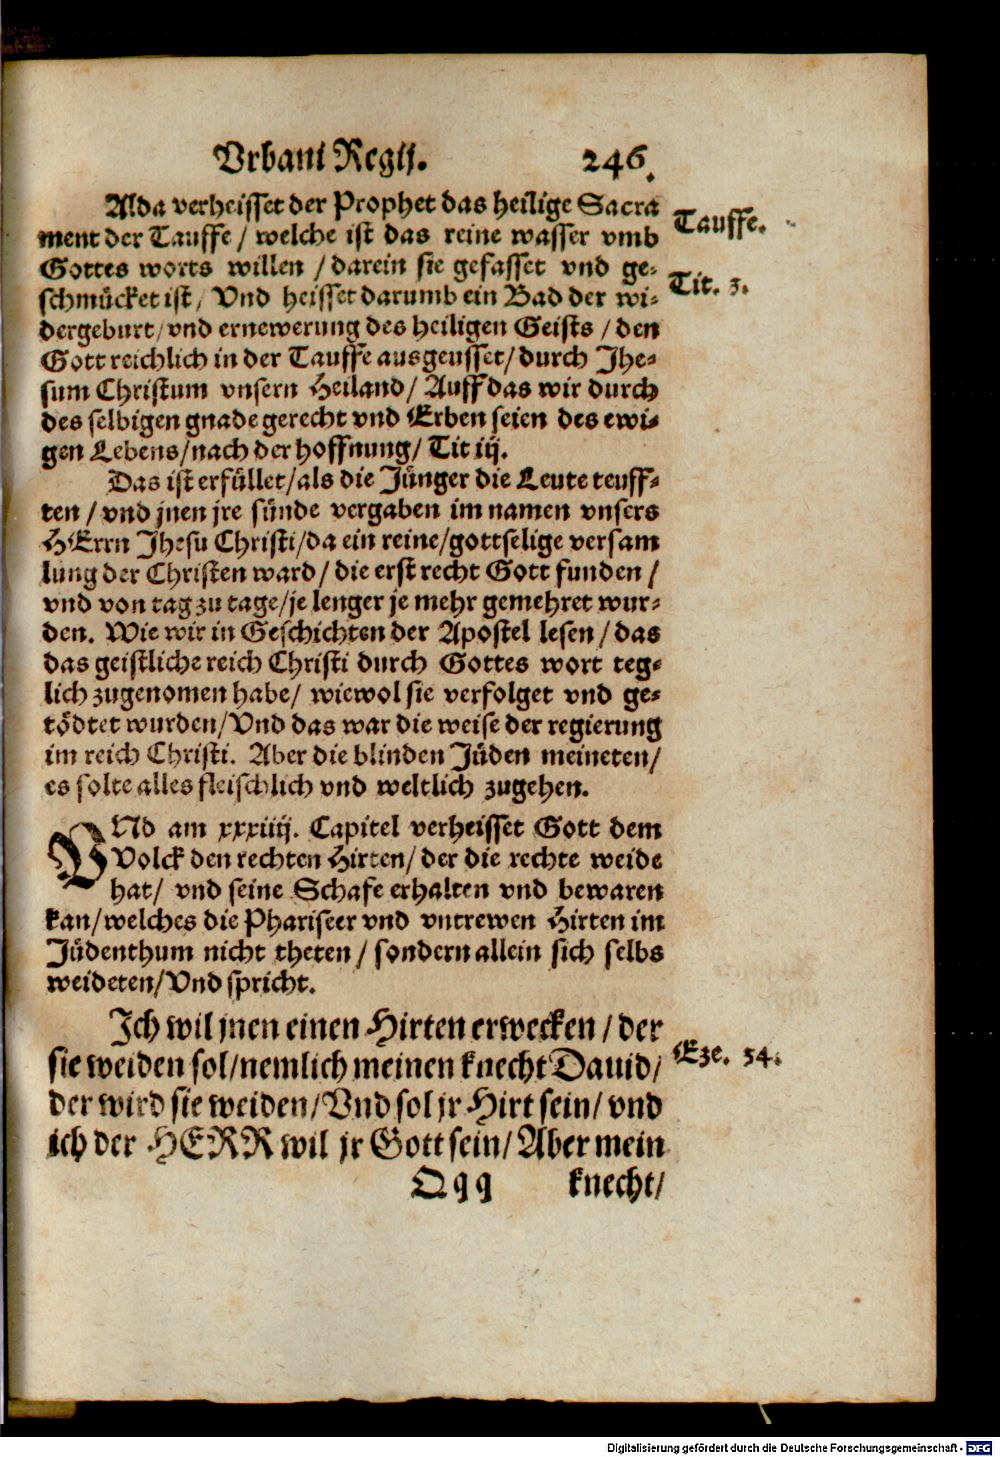 Vrbani Regij. 246.
Alda verheisset der Prophet das heilige Sacra
ment der Tauffe / welche ist das reine wasser vmb
Gottes worts willen / darein sie gefasset vnd ge-
schmücket ist, Vnd heisset darumb ein Bad der wi-
dergeburt/ vnd ernewerung des heiligen Geists / den
Gott reichlich in der Tauffe ausgeusset/ durch Jhe-
sum Christum vnsern Heiland/ Auff das wir durch
des selbigen gnade gerecht vnd Erben seien des ewi-
gen Lebens/nach der hoffnung/ Tit iij.
Tauffe.
Tit. 3.
Das ist erfüllet/als die Jünger die Leute teuff-
ten / vnd jnen jre sünde vergaben im namen vnsers
HErrn Jhesu Christi/da ein reine/gottselige versam
lung der Christen ward / die erst recht Gott funden /
vnd von tag zu tage/je lenger je mehr gemehret wur-
den. Wie wir in Geschichten der Apostel lesen / das
das geistliche reich Christi durch Gottes wort teg-
lich zugenomen habe/ wiewol sie verfolget vnd ge-
tödtet wurden/Vnd das war die weise der regierung
im reich Christi. Aber die blinden Jüden meineten/
es solte alles fleischlich vnd weltlich zugehen.
VNd am xxxiiij. Capitel verheisset Gott dem
Volck den rechten Hirten/ der die rechte weide
hat/ vnd seine Schafe erhalten vnd bewaren
kan/welches die Phariseer vnd vntrewen Hirten im
Jüdenthum nicht theten / sondern allein sich selbs
weideten/Vnd spricht.
Ich wil jnen einen Hirten erwecken / der
sie weiden sol/nemlich meinen knecht Dauid/
der wird sie weiden/Vnd sol jr Hirt sein/ vnd
ich der HERR wil jr Gott sein/ Aber mein
Eze. 34.
Qqq knecht/
Digitalisierung gefördert durch die Deutsche Forschungsgemeinschaft - DFG